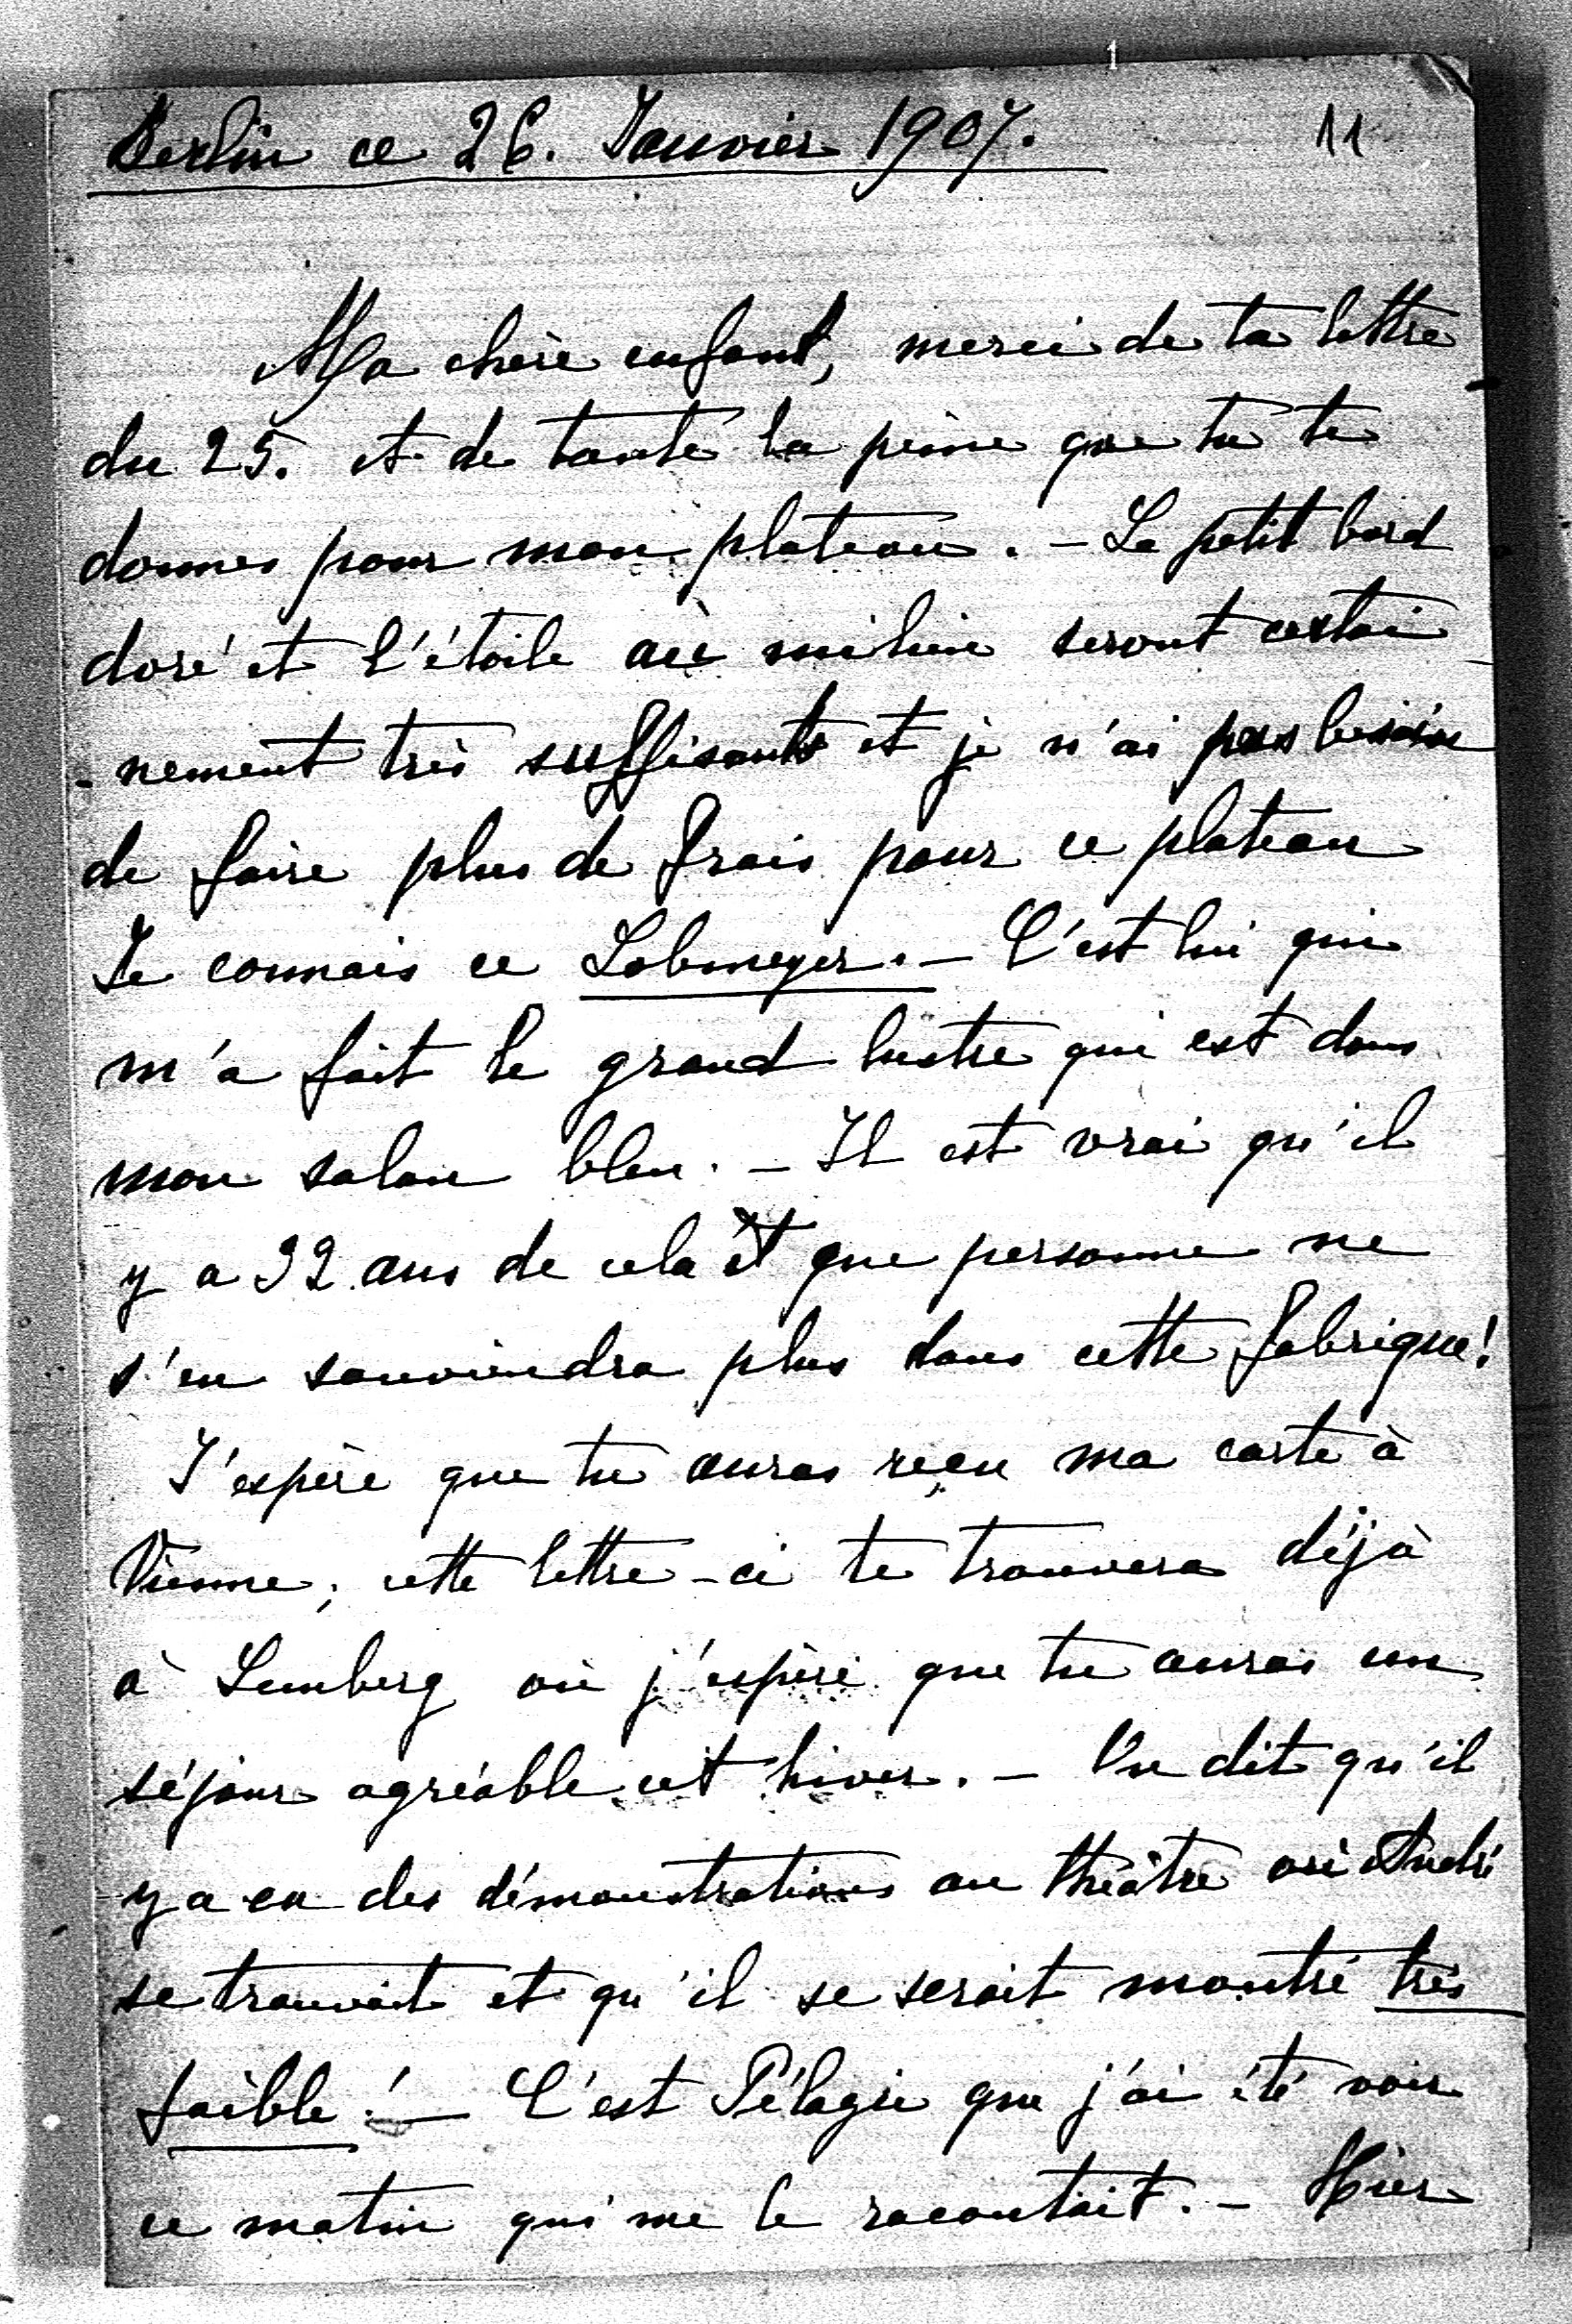 1
Berlin ce 26. Janvier 1907.
11
Ma chère enfant, merci de ta lettre
du 25. et de toute la peine que tu te
donnes pour mon plateau. – Le petit bord
doré et l'étoile au milieu seront certai-
-nement très suffisants et je n'ai pas besoin
de faire plus de frais pour ce plateau
Je connais ce Lobmeyer. – C'est lui qui
m'a fait le grand lustre qui est dans
mon salon bleu. – Il est vrai qu'il
y a 32 ans de cela et que personne ne
s'en souviendra plus dans cette fabrique!
J'espère que tu auras reçu ma carte à
Vienne; cette lettre-ci te trouvera déjà
à Lemberg où j'espère que tu auras un
séjour agréable cet hiver. – On dit qu'il
y a eu des démonstrations au théâtre où André
se trouvait et qu'il se serait montré très
faible! – C'est Pélagie que j'ai été voir
ce matin qui me le racontait. – Hier